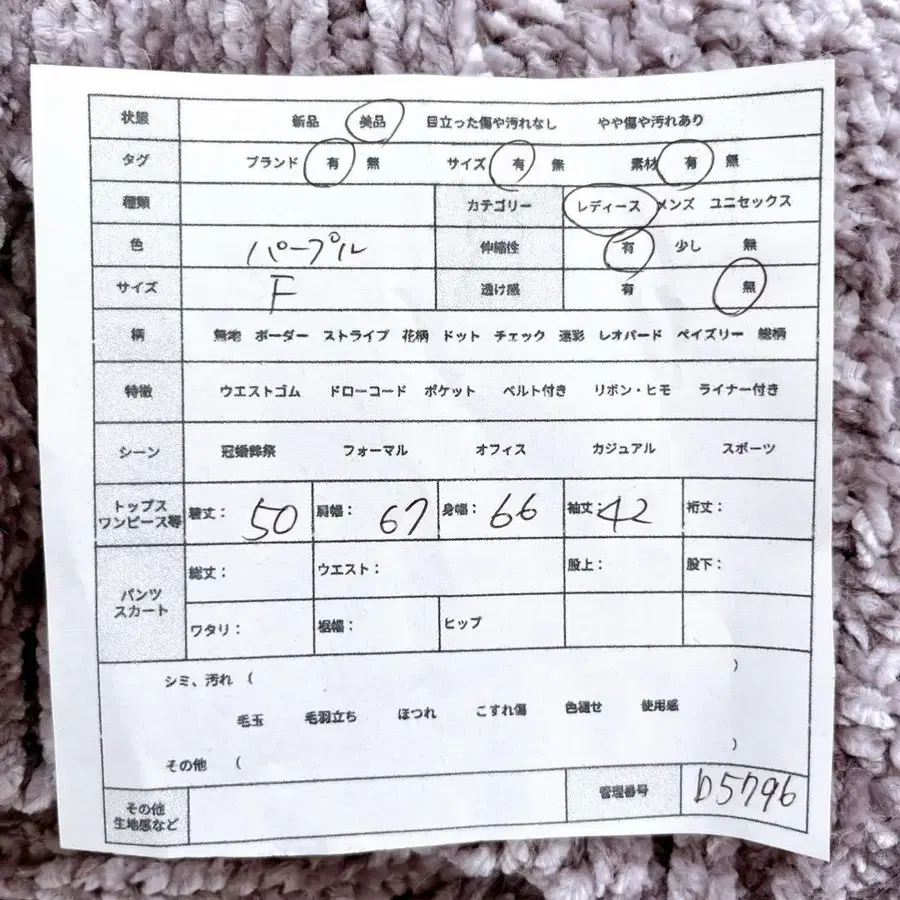 状態 新品 美品 目立った傷や汚れなし やや傷や汚れあり
タグ ブランド 有 無 サイズ 有 無 素材 有 無
種類 カテゴリー レディース メンズ ユニセックス
色 パープル 伸縮性 有 少し 無
サイズ F 透け感 有 無
柄 無地 ボーダー ストライプ 花柄 ドット チェック 迷彩 レオパード ペイズリー 総柄
特徴 ウエストゴム ドローコード ポケット ベルト付き リボン・ヒモ ライナー付き
シーン 冠婚葬祭 フォーマル オフィス カジュアル スポーツ
トップス
ワンピース等 着丈： 50 肩幅： 67 身幅： 66 袖丈： 42 裄丈：
パンツ
スカート 総丈： ウエスト： 股上： 股下：
ワタリ： 裾幅： ヒップ
シミ、汚れ （ ）
毛玉 毛羽立ち ほつれ こすれ傷 色褪せ 使用感
その他 （ ）
その他
生地感など 管理番号 D5796